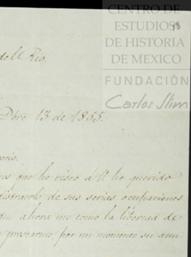 CENTRO DE
ESTUDIOS
DE HISTORIA
DE MEXICO
FUNDACIÓN
Carlos Slim
del Rio.
Dbre 13 de 1855.
que he visto á U he querido
distraerlo de sus serias ocupaciones
que ahora me tomo la libertad de
por un momento su aten